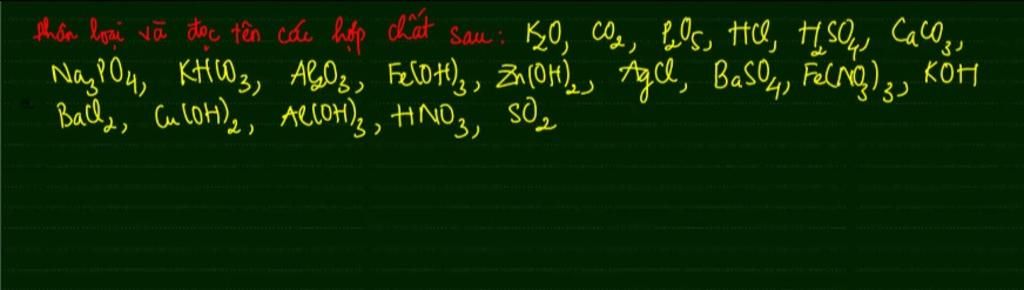 Phân loại và đọc tên các hợp chất sau: K₂O, CO₂, P₂O₅, HCl, H₂SO₄, CaCO₃,
Na₃PO₄, KHCO₃, Al₂O₃, Fe(OH)₃, Zn(OH)₂, AgCl, BaSO₄, Fe(NO₃)₃, KOH
BaCl₂, Cu(OH)₂, Al(OH)₃, HNO₃, SO₂